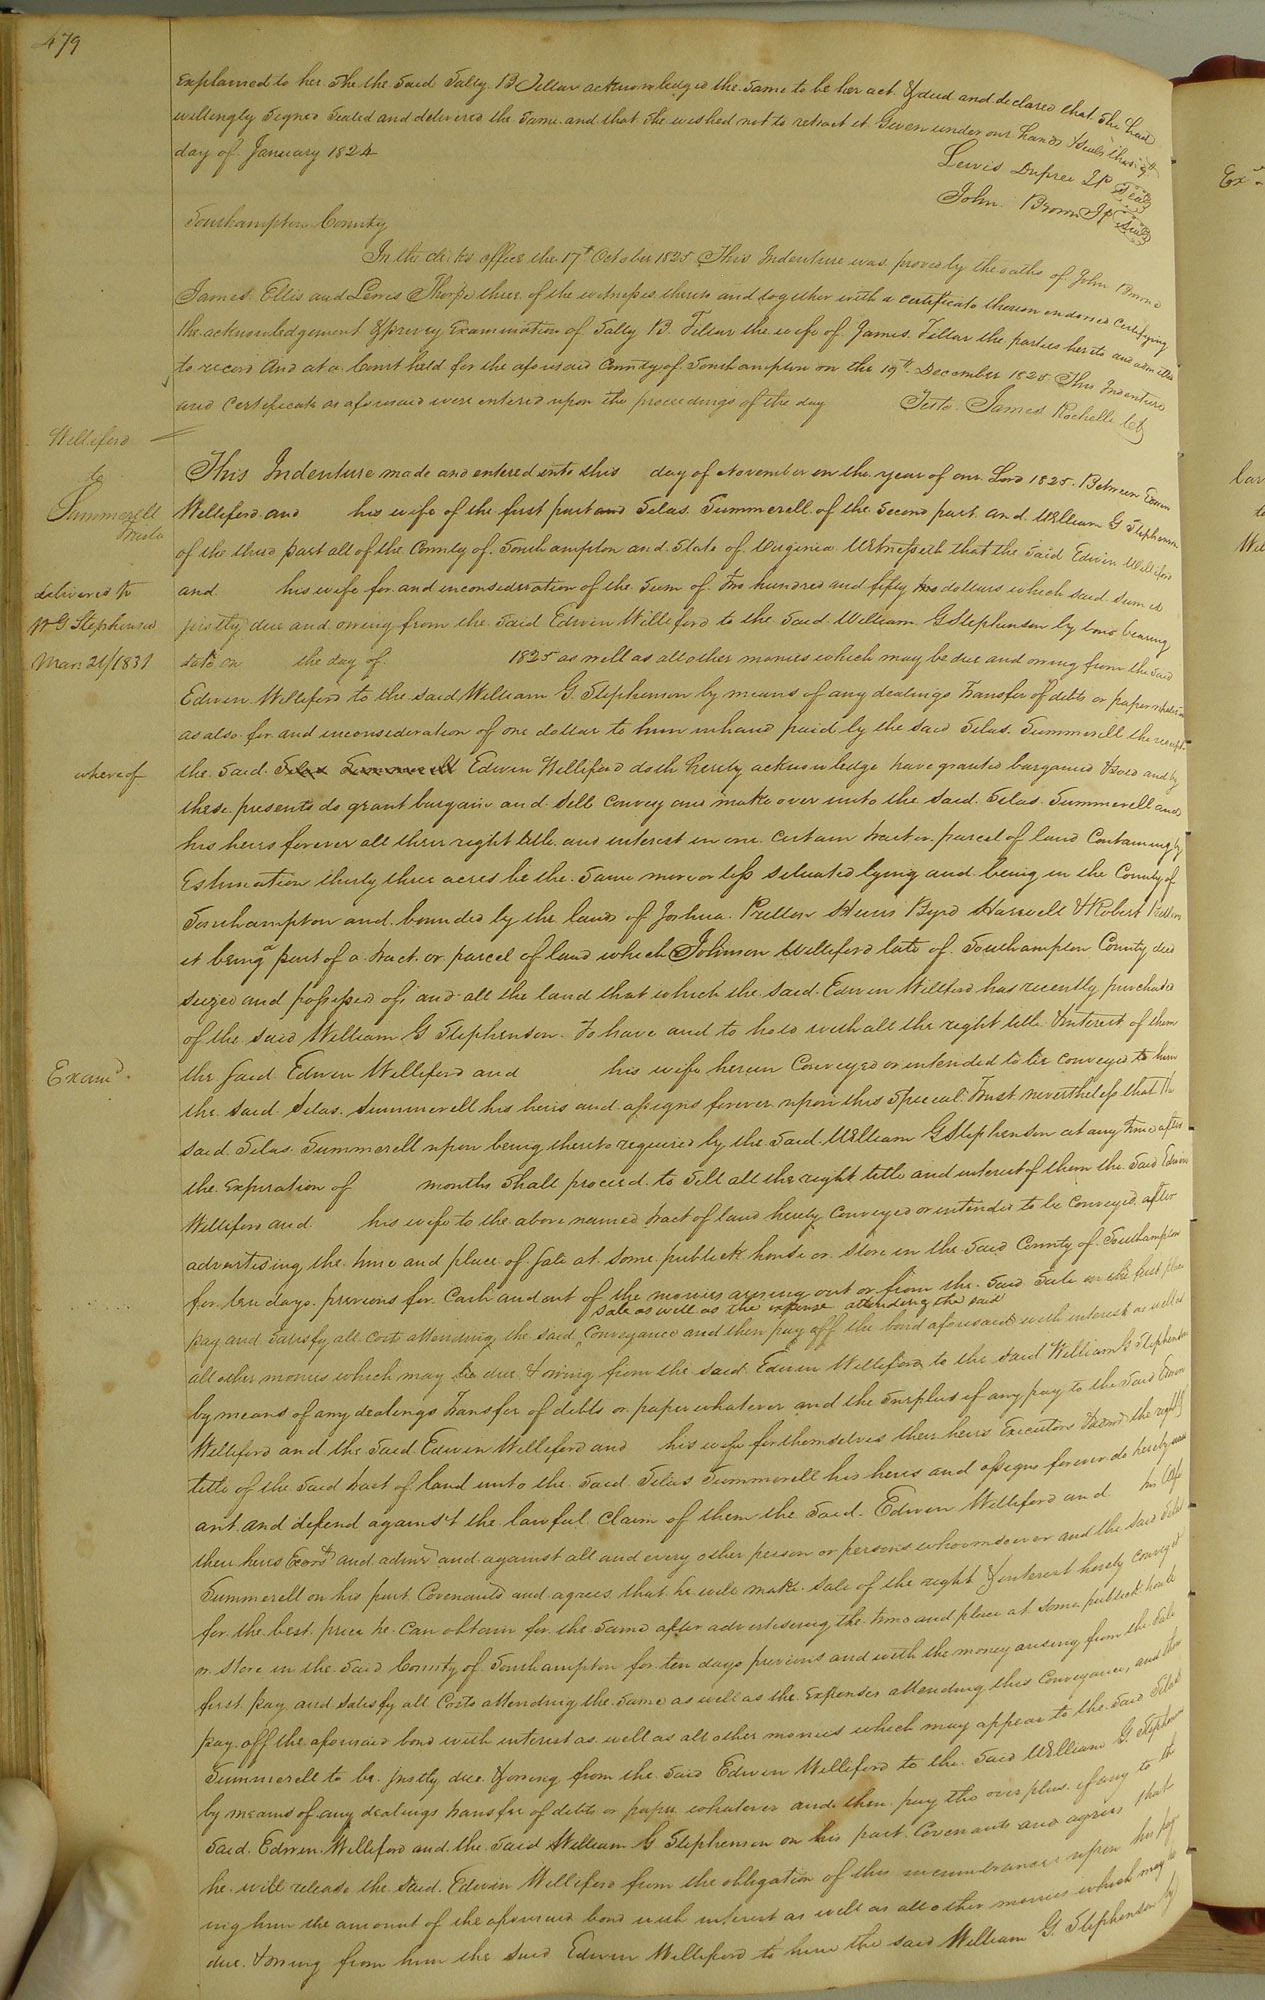 479
explained to her She the said Sally B Tillar acknowledged the same to be her act & deed and declared that She had
willingly Signed Sealed and delivered the Same and that She wished not to retract it Given under our hands & Seals this 9th
day of January 1824
Lewis Dupree JP Seal
John Brown JP Seal
Southampton County
In the clerks office the 17th October 1825 This Indenture was proved by the oaths of John Brown
James Ellis and Lewis Thorpe three of the witnesses thereto and together with a certificate thereon endorsed Certifying
the acknowledgement & privy Examination of Sally B. Tillar the wife of James Tillar the parties hereto and admitted
to record And at a Court held for the aforesaid County of Southampton on the 19th December 1825 This Indenture
and Certificate as aforesaid were entered upon the proceedings of the day
Teste James Rochelle
Williford
to
Summerell
Delivered to
W G Stephenson
Mar: 21/1831
This Indenture made and entered into this day of November in the year of our Lord 1825. Between Edwin
Williford and his wife of the first part and Silas Summerell of the Second part and William G Stephenson
of the third part all of the County of Southampton and State of Virginia Witnesseth that the Said Edwin Williford
and his wife for and in consideration of the Sum of Two hundred and fifty two dollars which said sum is
justly due and owing from the Said Edwin Williford to the Said William G Stephenson by bond bearing
date on the day of 1825 as well as all other monies which may be due and owing from the Said
Edwin Williford to the said William G. Stephenson by means of any dealings Transfer of debts or paper whatever
as also for and in consideration of one dollar to him in hand paid by the said Silas Summerell the receipt
whereof
the Said Silas Summerell Edwin Williford doth hereby acknowledge have granted bargained & sold and by
these presents do grant bargain and Sell Convey and make over unto the said Silas Summerell and
his heirs forever all their right title and interest in one certain tract or parcel of land Containing by
Estimation thirty three acres be the Same more or less situated lying and being in the County of
Southampton and bounded by the land of Joshua Pretlow Byrd Harrell & Robert
it being a part of a tract or parcel of land which Johnson Williford late of Southampton County died
seized and possessed of and all the land that which the said Edwin Williford has recently purchased
of the said William G Stephenson. To have and to hold with all the right title & interest of them
Examd.
the said Edwin Williford and his wife herein Conveyed or intended to be conveyed to him
the said Silas Summerell his heirs and assigns forever upon this Special Trust nevertheless that the
said Silas Summerell upon being thereto required by the Said William G Stephenson at any time after
the Expiration of months Shall proceed to Sell all the right title and interest of them the Said Edwin
Williford and his wife to the above named tract of land hereby Conveyed or intended to be conveyed after
advertising the time and place of Sale at some publick house or store in the said County of Southampton
for ten days previous for Cash and out of the monies arising out or from the Said Sale in the first place
sale as well as the expense attending the said
pay and Satisfy all Costs attending the said Conveyance and then pay off the bond aforesaid with interest as well as
all other monies which may be due & owing from the said Edwin Williford to the Said William G Stephenson
by means of any dealings Transfer of debts or paper whatever and the Surplus if any pay to the Said Edwin
Williford and the said Edwin Williford and his wife for themselves their heirs Executors & admrs the right &
title of the said tract of land unto the Said Silas Summerell his heirs and assigns forever do hereby warr
ant and defend against the lawful claim of them the Said Edwin Williford and his wife
their heirs Exors and admrs and against all and every other person or persons whoomsoever and the said Silas
Summerell on his part Covenants and agrees that he will make Sale of the right & interest hereby conveyed
for the best price he can obtain for the Same after advertising the time and place at some publick house
or Store in the said County of Southampton for ten days previous and with the money arising from the Sale
first pay and satisfy all Costs attending the same as well as the Expenses attending this Conveyance, and then
pay off the aforesaid bond with interest as well as all other monies which may appear to the said Silas
Summerell to be justly due & owing from the said Edwin Williford to the Said William G. Stephenson
by means of any dealings transfer of debts or paper whatever and then pay the over plus if any to the
Said Edwin Williford and the Said William G Stephenson on his part Covenants and agrees that
he will release the said Edwin Williford from the obligation of this incumbrance upon his pay
ing him the amount of the aforesaid bond with interest as well as all other monies which may be
due & owing from him the said Edwin Williford to him the said William G. Stephenson by